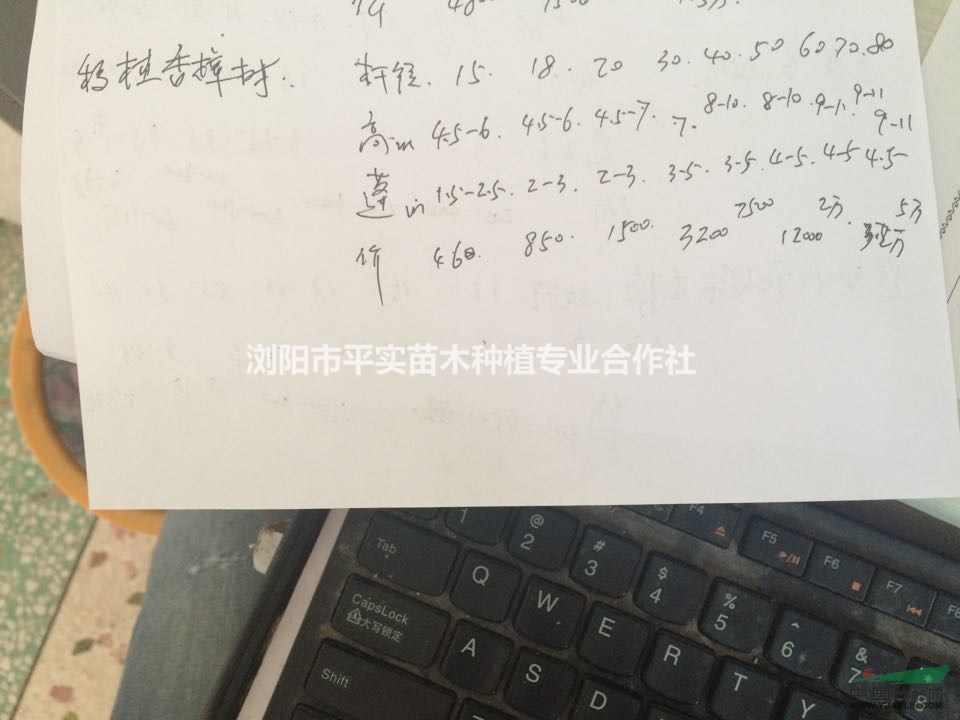 价 4800 7500
移植香樟树. 杆径. 15. 18. 20 30. 40. 50 60 70. 80
高m 4.5-6. 4.5-6. 4.5-7. 7. 8-10. 8-10. 9-11. 9-11 9-11
蓬m 1.5-2.5. 2-3. 2-3. 3-5. 3-5. 4-5. 4-5 4.5
价 460. 850. 1500. 3200 7500 12000 2万. 5万
浏阳市平实苗木种植专业合作社
Tab
1
@ 2
# 3
$ 4
% 5
^ 6
& 7
* 8
F4
F5
F6
F7
F8
Q
W
E
R
T
Y
CapsLock
大写锁定
A
S
D
Shift